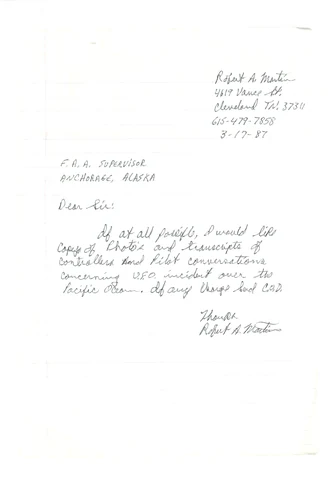 Robert A. Martin
4819 Vance St.
Cleveland TN. 37311
615-479-7858
3-17-87
F.A.A. SUPERVISOR
ANCHORAGE, ALASKA
Dear Sir:
If at all possible, I would like
Copys of Photo's and transcripts of
Controllers and Pilot conversations
concerning U.F.O. incident over the
Pacific Ocean. If any Charge Send C.O.D.
Thanks.
Robert A. Martin